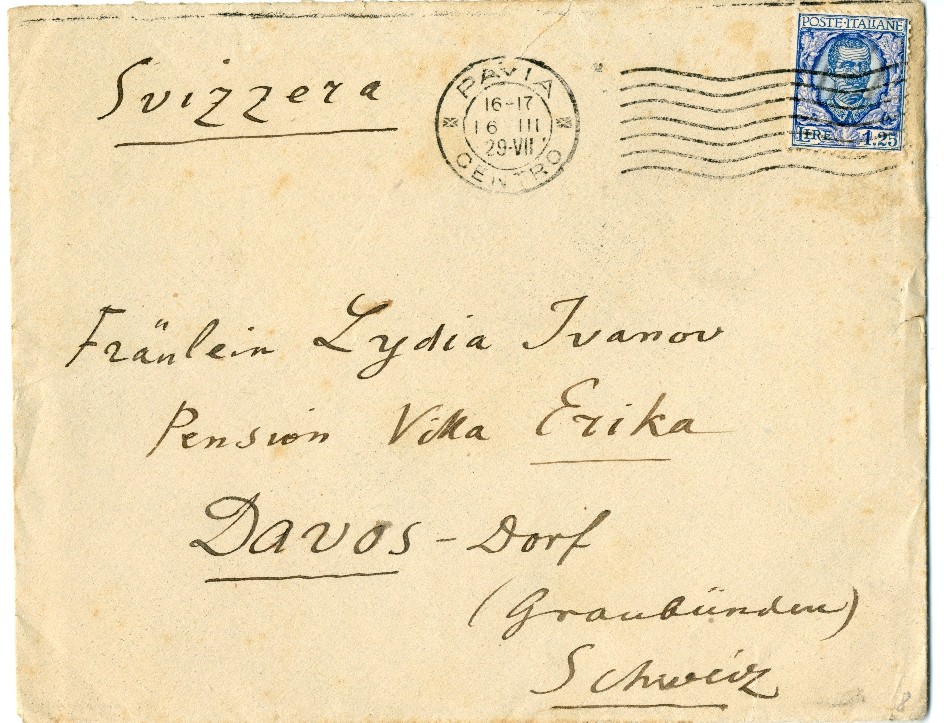 Svizzera
PAVIA
16-17
16 III
29·VII
CENTRO
POSTE·ITALIANE
LIRE 1.25
Fräulein Lydia Ivanov
Pension Villa Erika
Davos - Dorf
(Graubünden)
Schweiz
8